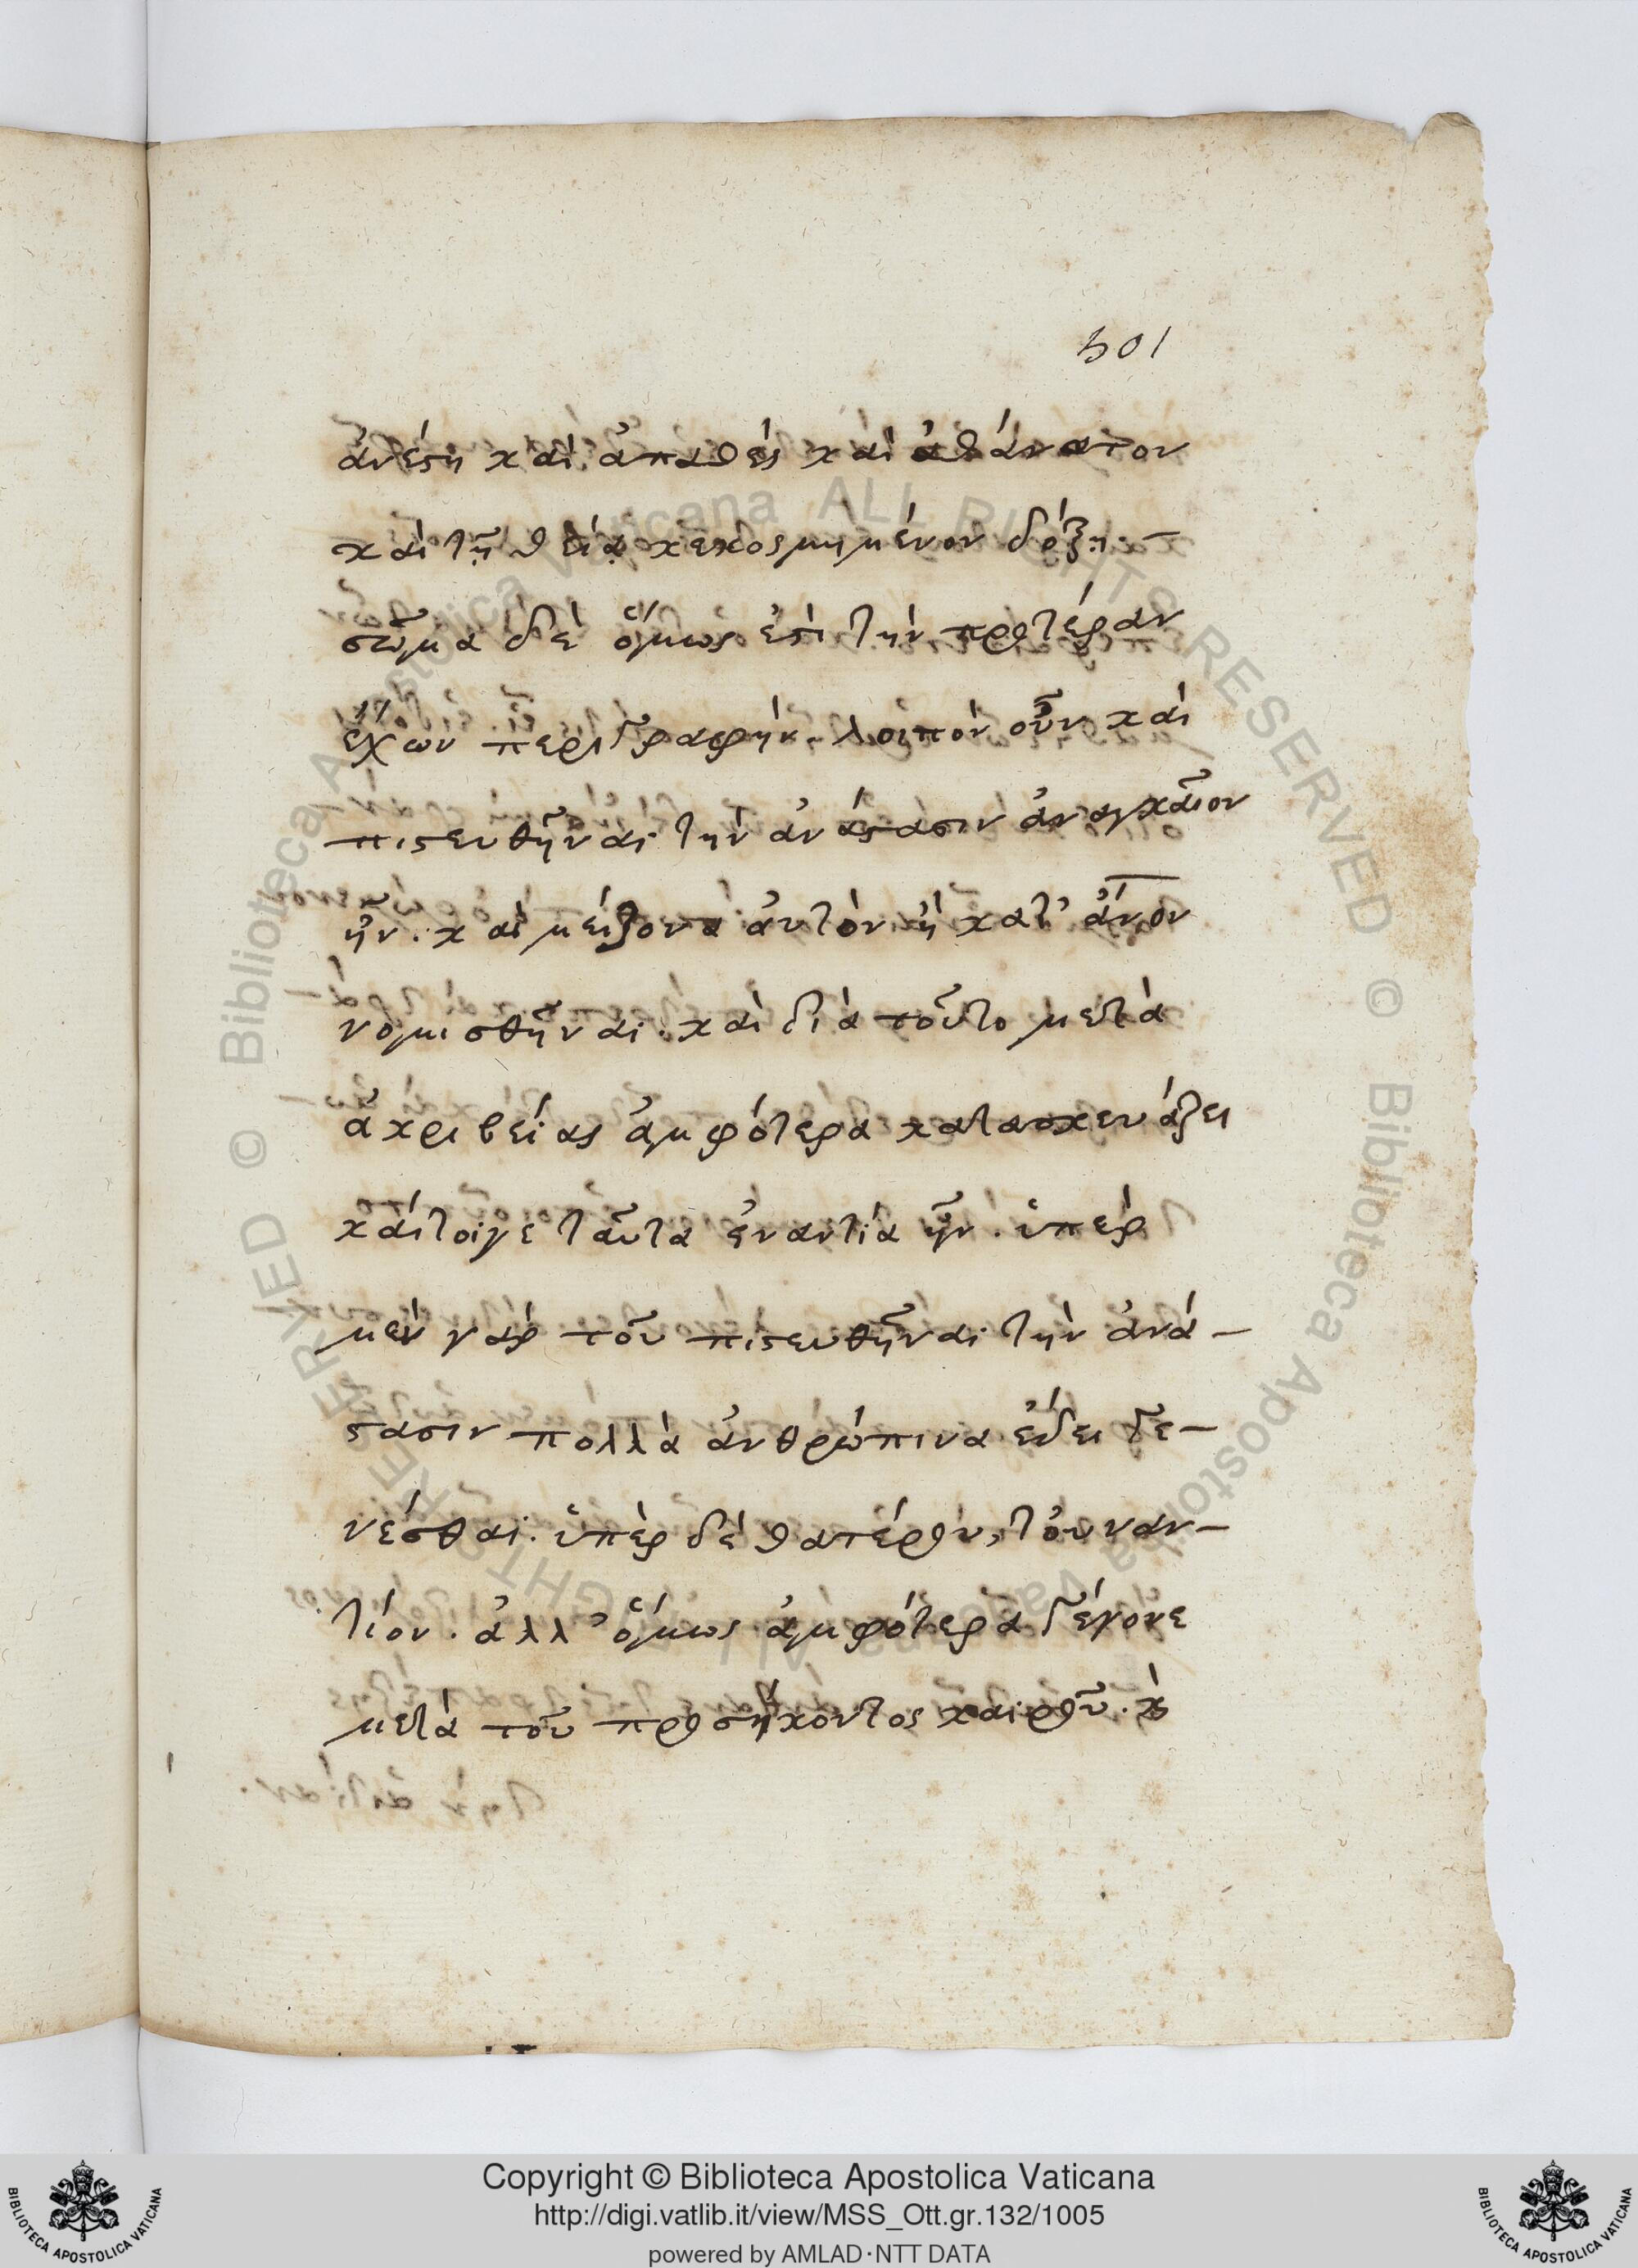 501
ἀνέστη καὶ ἀπαθὲς καὶ ἀθάνατον
καὶ τῇ θείᾳ κεκοσμημένον δόξῃ. –
σῶμα δὲ ὅμως ἐπὶ τὴν προτέραν
ἔχων περιγραφήν. λοιπὸν οὖν καὶ
πιστευθῆναι τὴν ἀνάστασιν ἀναγκαῖον
ἦν. καὶ μείζονα αὐτὸν ἢ κατ' ἄνον
νομισθῆναι. καὶ διὰ τοῦτο μετὰ
ἀκριβείας ἀμφότερα κατασκευάζει
καίτοιγε ταῦτα ἐναντία ἦν. ὑπὲρ
μὲν γὰρ τοῦ πιστευθῆναι τὴν ἀνά–
στασιν πολλὰ ἀνθρώπινα ἔδει γε–
νέσθαι. ὑπὲρ δὲ θατέρου, τοὐναν–
τίον. ἀλλ' ὅμως ἀμφότερα γέγονε
μετὰ τοῦ προσήκοντος καιροῦ. ϗ
Copyright © Biblioteca Apostolica Vaticana
http://digi.vatlib.it/view/MSS_Ott.gr.132/1005
powered by AMLAD·NTT DATA
BIBLIOTECA APOSTOLICA VATICANA
BIBLIOTECA APOSTOLICA VATICANA
© Biblioteca Apostolica Vaticana ALL RIGHTS RESERVED © Biblioteca Apostolica Vaticana ALL RIGHTS RESERVED